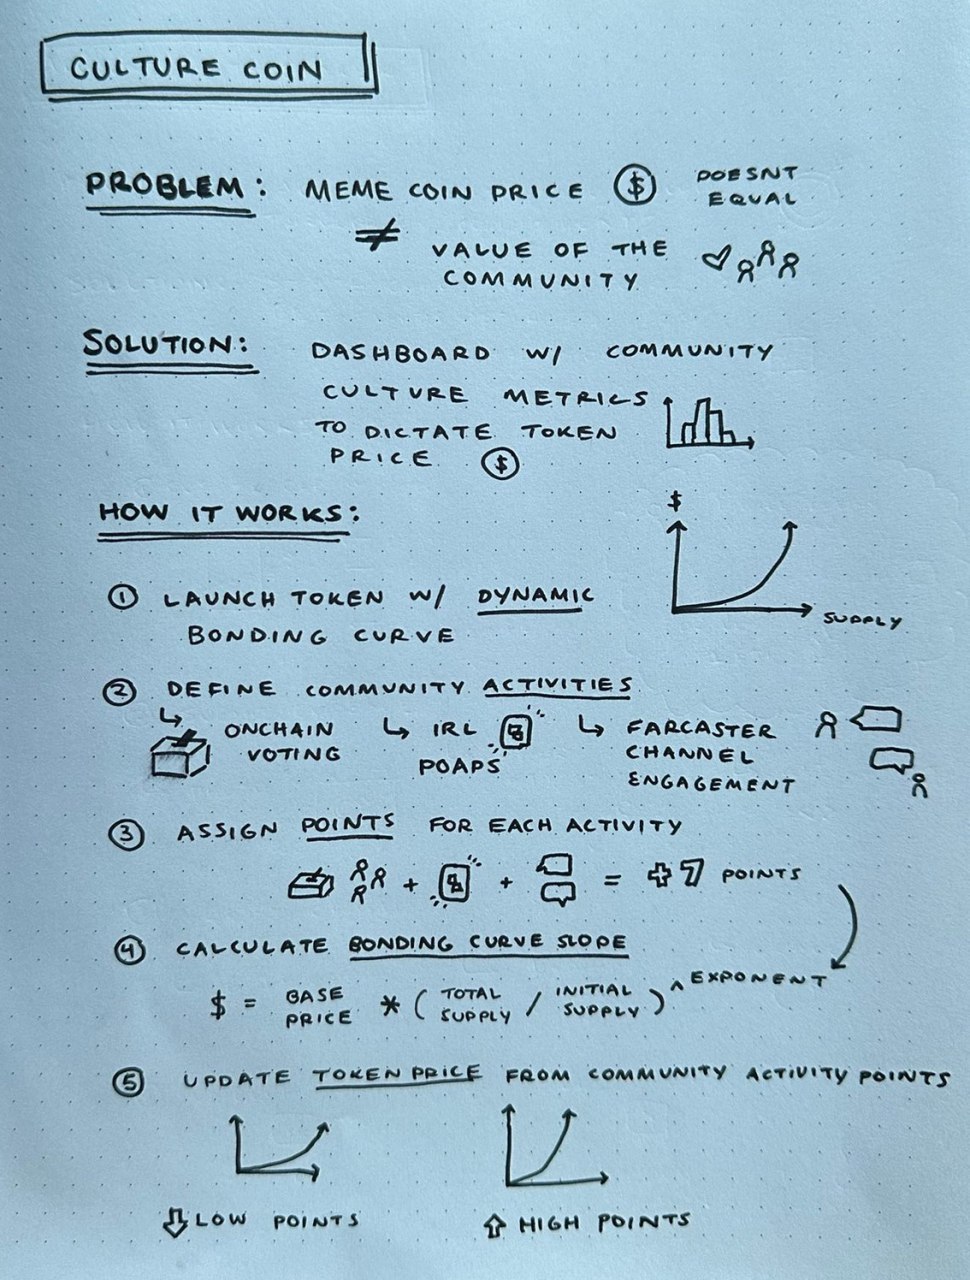 CULTURE COIN
PROBLEM: MEME COIN PRICE $ DOESNT
EQUAL
≠ VALUE OF THE
COMMUNITY
SOLUTION: DASHBOARD W/ COMMUNITY
CULTURE METRICS
TO DICTATE TOKEN
PRICE $
HOW IT WORKS:
$
① LAUNCH TOKEN W/ DYNAMIC
BONDING CURVE
SUPPLY
② DEFINE COMMUNITY ACTIVITIES
↳ ONCHAIN
VOTING
↳ IRL
POAPS
↳ FARCASTER
CHANNEL
ENGAGEMENT
③ ASSIGN POINTS FOR EACH ACTIVITY
+ + = +7 POINTS
④ CALCULATE BONDING CURVE SLOPE
$ = BASE PRICE * (TOTAL SUPPLY / INITIAL SUPPLY) ^ EXPONENT
⑤ UPDATE TOKEN PRICE FROM COMMUNITY ACTIVITY POINTS
⇩ LOW POINTS
⇧ HIGH POINTS